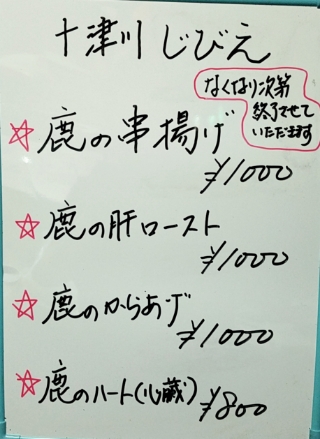 十津川じびえ
なくなり次第
終了させて
いただきます
☆鹿の串揚げ
¥1000
☆鹿の肝ロースト
¥1000
☆鹿のからあげ
¥1000
☆鹿のハート(心蔵)¥800